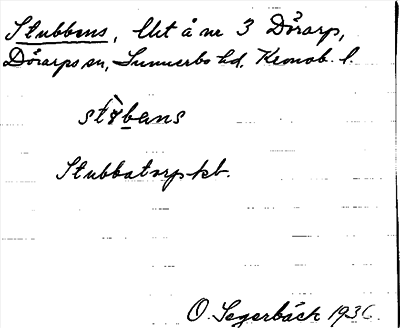 Stubbens, lht å nr 3 Dörarp,
Dörarps sn, Sunnerbo hd, Kronob. l.
stòbans
Stubbatorp kt.
O. Segerbäck 1936.